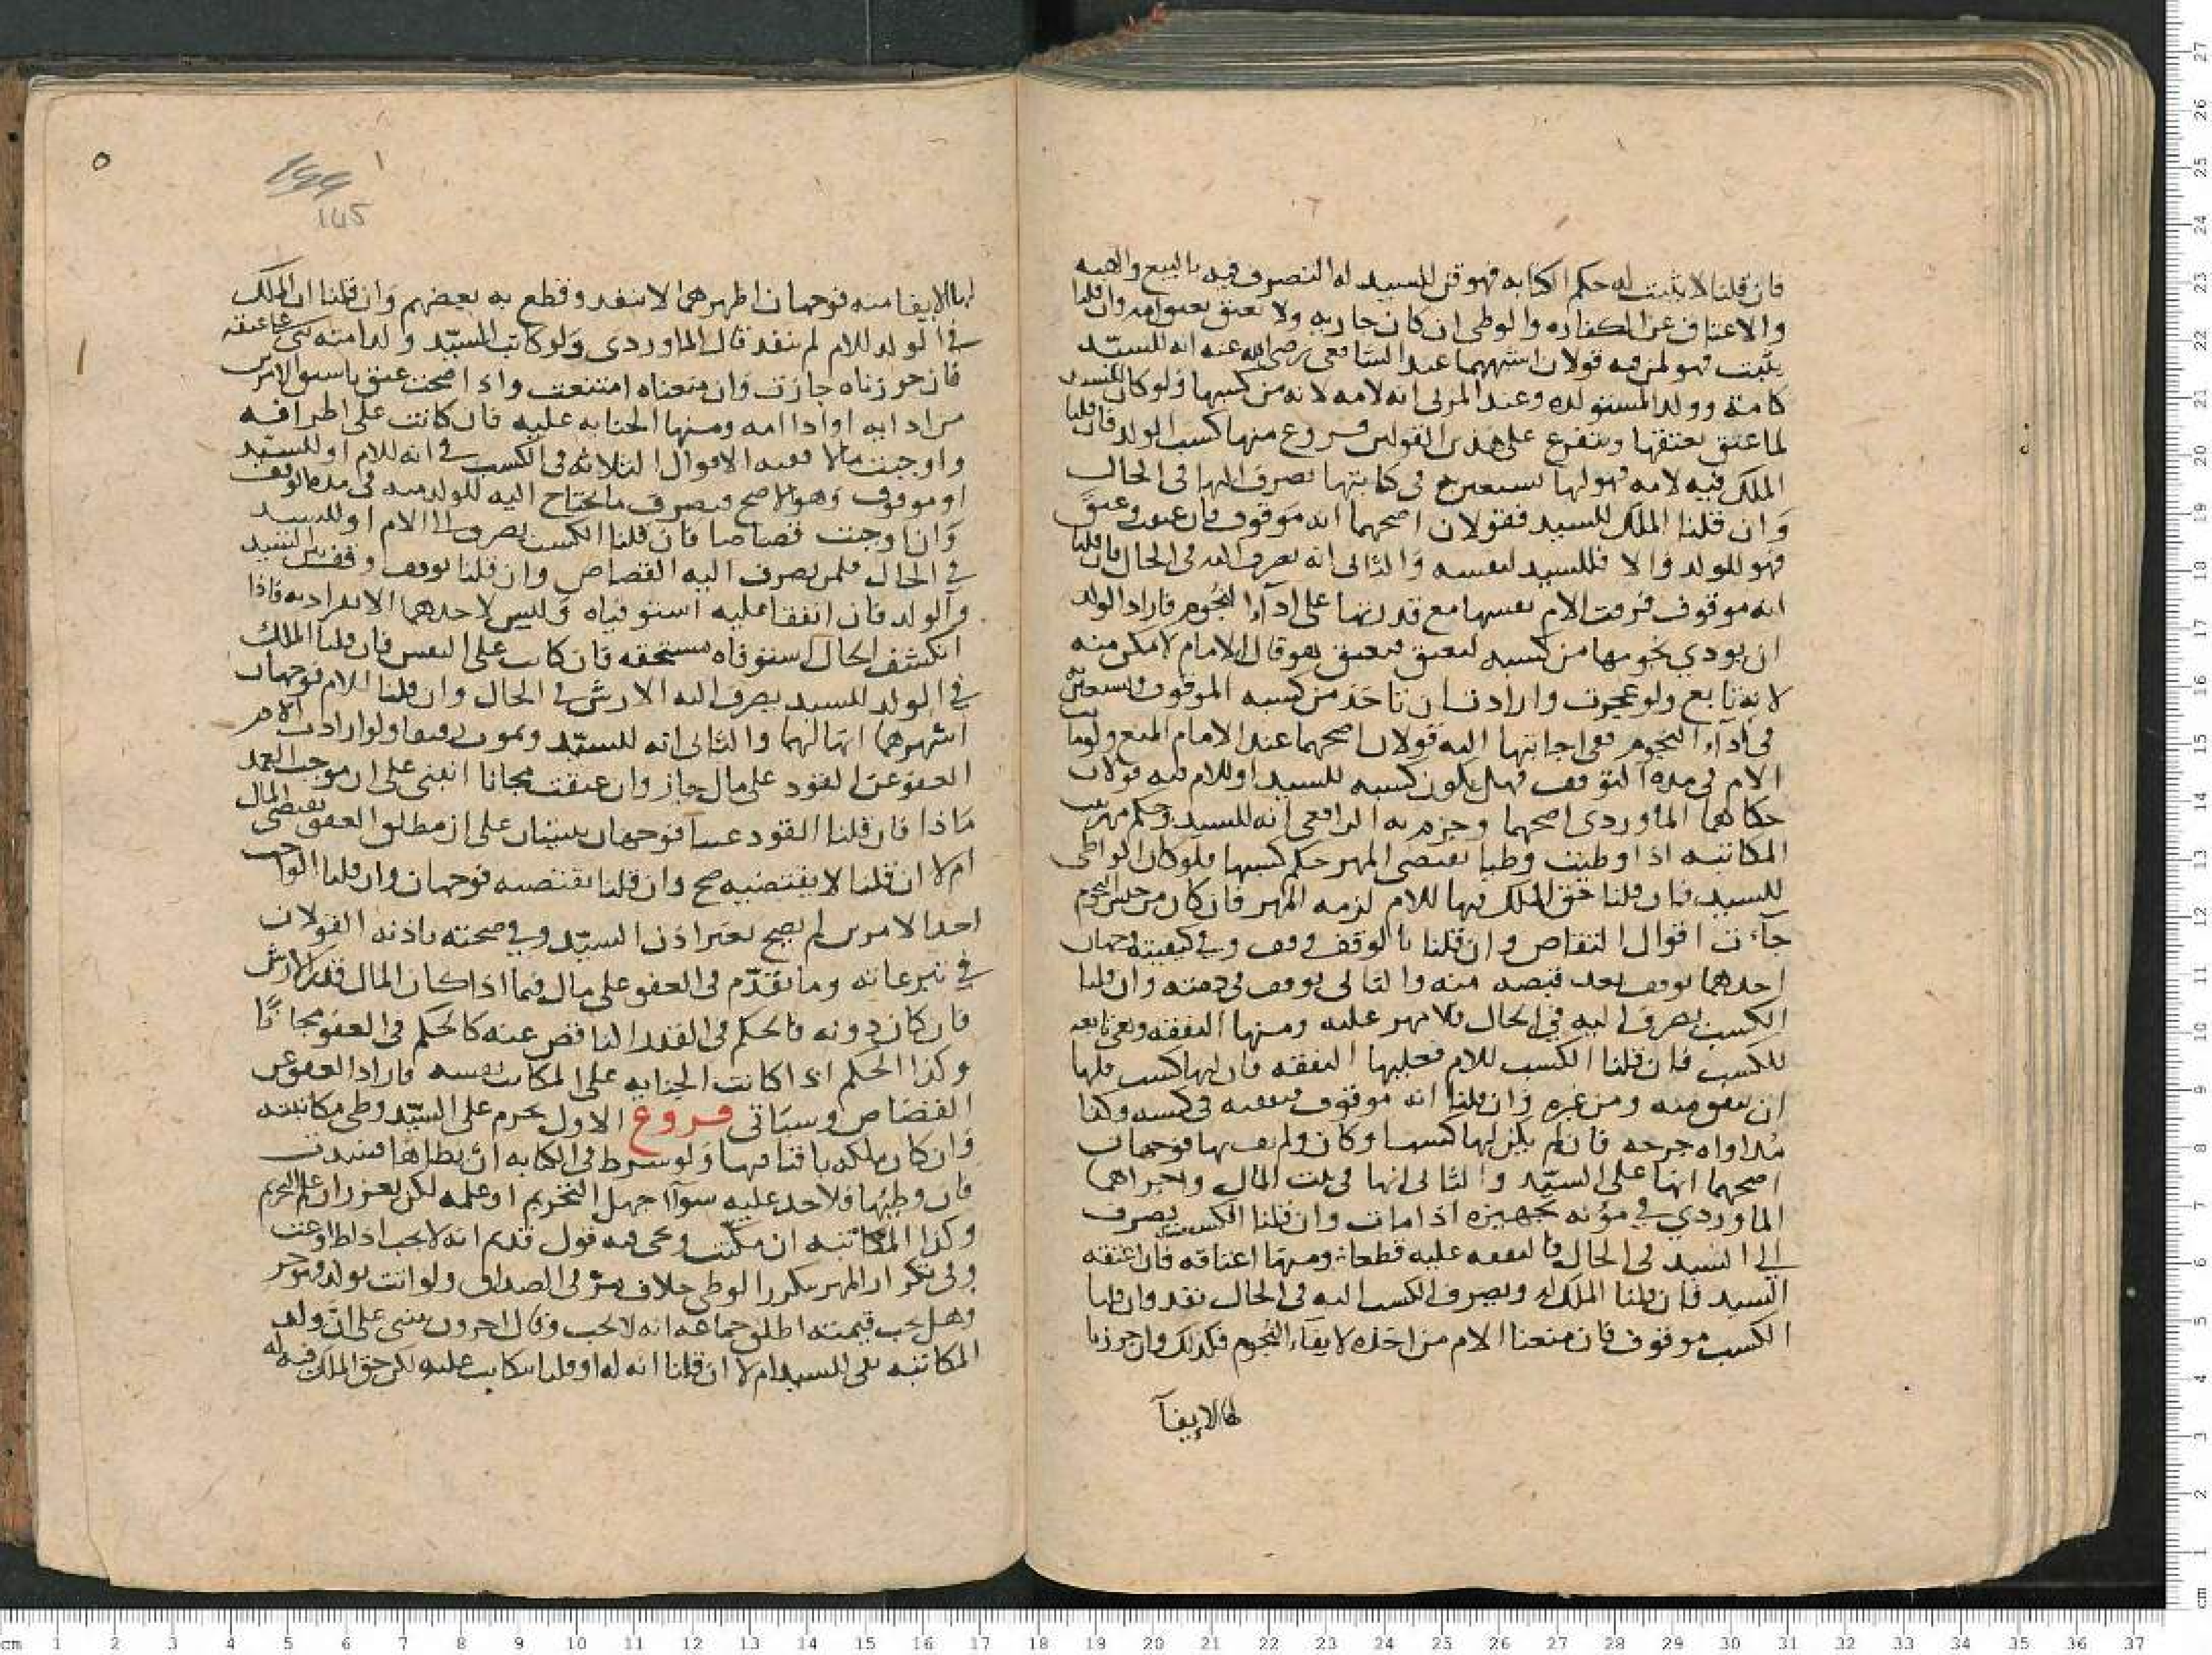 فان قلنا لا يثبت له حكم الكتابه فهو قن للسيد له التصرف فيه بالبيع والهبه
والاعتاق عن الكفاره والوطى ان كان جاريه ولا تعتق بعتق امه وان قلنا
يثبت فهو لمن فيه قولان اشهرهما عند الشافعي رضي الله عنه انه للسيد
كامته وولد المستولده وعند المزني انه لامه لانه من كسبها ولو كان للسيد
لما عتق بعتقها ويتفرع على هذين القولين فروع منها كسب الولد فان قلنا
الملك فيه لامه فهو لها تستعين به في كتابتها يصرف اليها في الحال
وان قلنا الملك للسيد فقولان اصحهما انه موقوف فان عتقت وعتق
فهو للولد والا فللسيد لنفسه والثاني انه يصرف اليه في الحال فان قلنا
انه موقوف فرقت الام نفسها مع قدرتها على اداء النجوم فاراد الولد
ان يودي نجومها من كسبه لتعتق فيعتق هو قال الامام لا يمكن منه
لانه تابع ولو عجزت وارادت ان تاخذ من كسبه الموقوف وتستعين
في اداء النجوم ففي اجابتها اليه قولان اصحهما عند الامام المنع ولو مات
الام في مده التوقف فهل يكون كسبه للسيد او للام فيه قولان
حكاهما الماوردي اصحهما وجزم به الرافعي انه للسيد وحكم مهر بنت
المكاتبه اذا وطئت وطيا يقتضي المهر حكم كسبها فلو كان الواطى
للسيد فان قلنا حق الملك فيها للام لزمه المهر فان كان من جنس النجوم
جاءت اقوال التقاص وان قلنا بالوقف وقف وفي كيفيته وجهان
احدهما يوقف بعد قبضه منه والثاني يوقف في ذمته وان قلنا
الكسب يصرف اليه في الحال فلا مهر عليه ومنها النفقه وهي تابعه
للكسب فان قلنا الكسب للام فعليها النفقه فان لها كسب فلها
ان تنفق منه ومن غيره وان قلنا انه موقوف فنفقته في كسبه وكذا
مداواه جرحه فان لم يكن لها كسب او كان ولم يف بها فوجهان
اصحهما انها على السيد والثاني انها في بيت المال واجراهما
الماوردي في مؤنه تجهيزه اذا مات وان قلنا الكسب يصرف
الى السيد في الحال فالنفقه عليه قطعا ومنها اعتاقه فان اعتقه
السيد فان قلنا الملك له ويصرف الكسب اليه في الحال نفذ وان قلنا
الكسب موقوف فان منعنا الام من اخذه لايفاء النجوم فكذلك وان جوزنا
لها الايفآ
١
٥
145
لها الايفا منه فوجهان اظهرهما لا ينفذ وقطع به بعضهم وان قلنا ان الملك
في الولد للام لم ينفذ قال الماوردي ولو كاتب السيد ولد امته
فان جوزناه جازت وان منعناه امتنعت واذا صحت عتق باسبق الامرين
من ادايه او ادا امه ومنها الجنايه عليه فان كانت على اطرافه
واوجبت مالا ففيه الاقوال الثلاثه في الكسب في انه للام او للسيد
او موقوف وهو الاصح فيصرف ما يحتاج اليه للولد منه في مده الوقف
وان اوجبت قصاصا فان قلنا الكسب يصرف الى الام او للسيد
في الحال فلمن يصرف اليه القصاص وان قلنا يوقف وقف بين السيد
والولد فان اتفقا عليه استوفياه وليس لاحدهما الانفراد به فاذا
انكشف الحال استوفاه مستحقه فان كانت على النفس فان قلنا الملك
في الولد للسيد يصرف اليه الارش في الحال وان قلنا للام فوجهان
اشهرهما انها لهما والثاني انه للسيد ويموت رقيقا ولو ارادت الام
العفو عن القود على مال جاز وان عتقت مجانا انبنى على ان موجب العمد
ماذا فان قلنا القود عينا فوجهان يبنيان على ان مطلق العفو يقتضي المال
ام لا ان قلنا لا يقتضيه صح وان قلنا يقتضيه فوجهان وان قلنا الواجب
احد الامرين لم يصح بغير اذن السيد وفي صحته باذنه القولان
في تبرعاته وما تقدم في العفو على مال فيما اذا كان المال قدر الارش
فان كان دونه فالحكم في القدر الناقص عنه كالحكم في العفو مجانا
وكذا الحكم اذا كانت الجنايه على المكاتب نفسه فاراد العفو عن
القصاص وسياتي فروع الاول يحرم على السيد وطى مكاتبته
وان كان ملكه باقيا فيها ولو شرط في الكتابه ان يطاها فسدت
فان وطيها فلا حد عليه سوآ جهل التحريم او علمه لكن يعزر ان علم التحريم
وكذا المكاتبه ان مكنت وحكى فيه قول قديم انه لا يجب اذا طاوعت
وفي تكرار المهر بتكرر الوطى خلاف مر في الصداق ولو اتت بولد فهو حر
وهل يجب قيمته اطلق جماعه انه لا يجب وقال اخرون ينبني على ان ولد
المكاتبه ملك السيد ام لا ان قلنا انه له او قلنا يتكاتب عليه لكن حق الملك فيه له